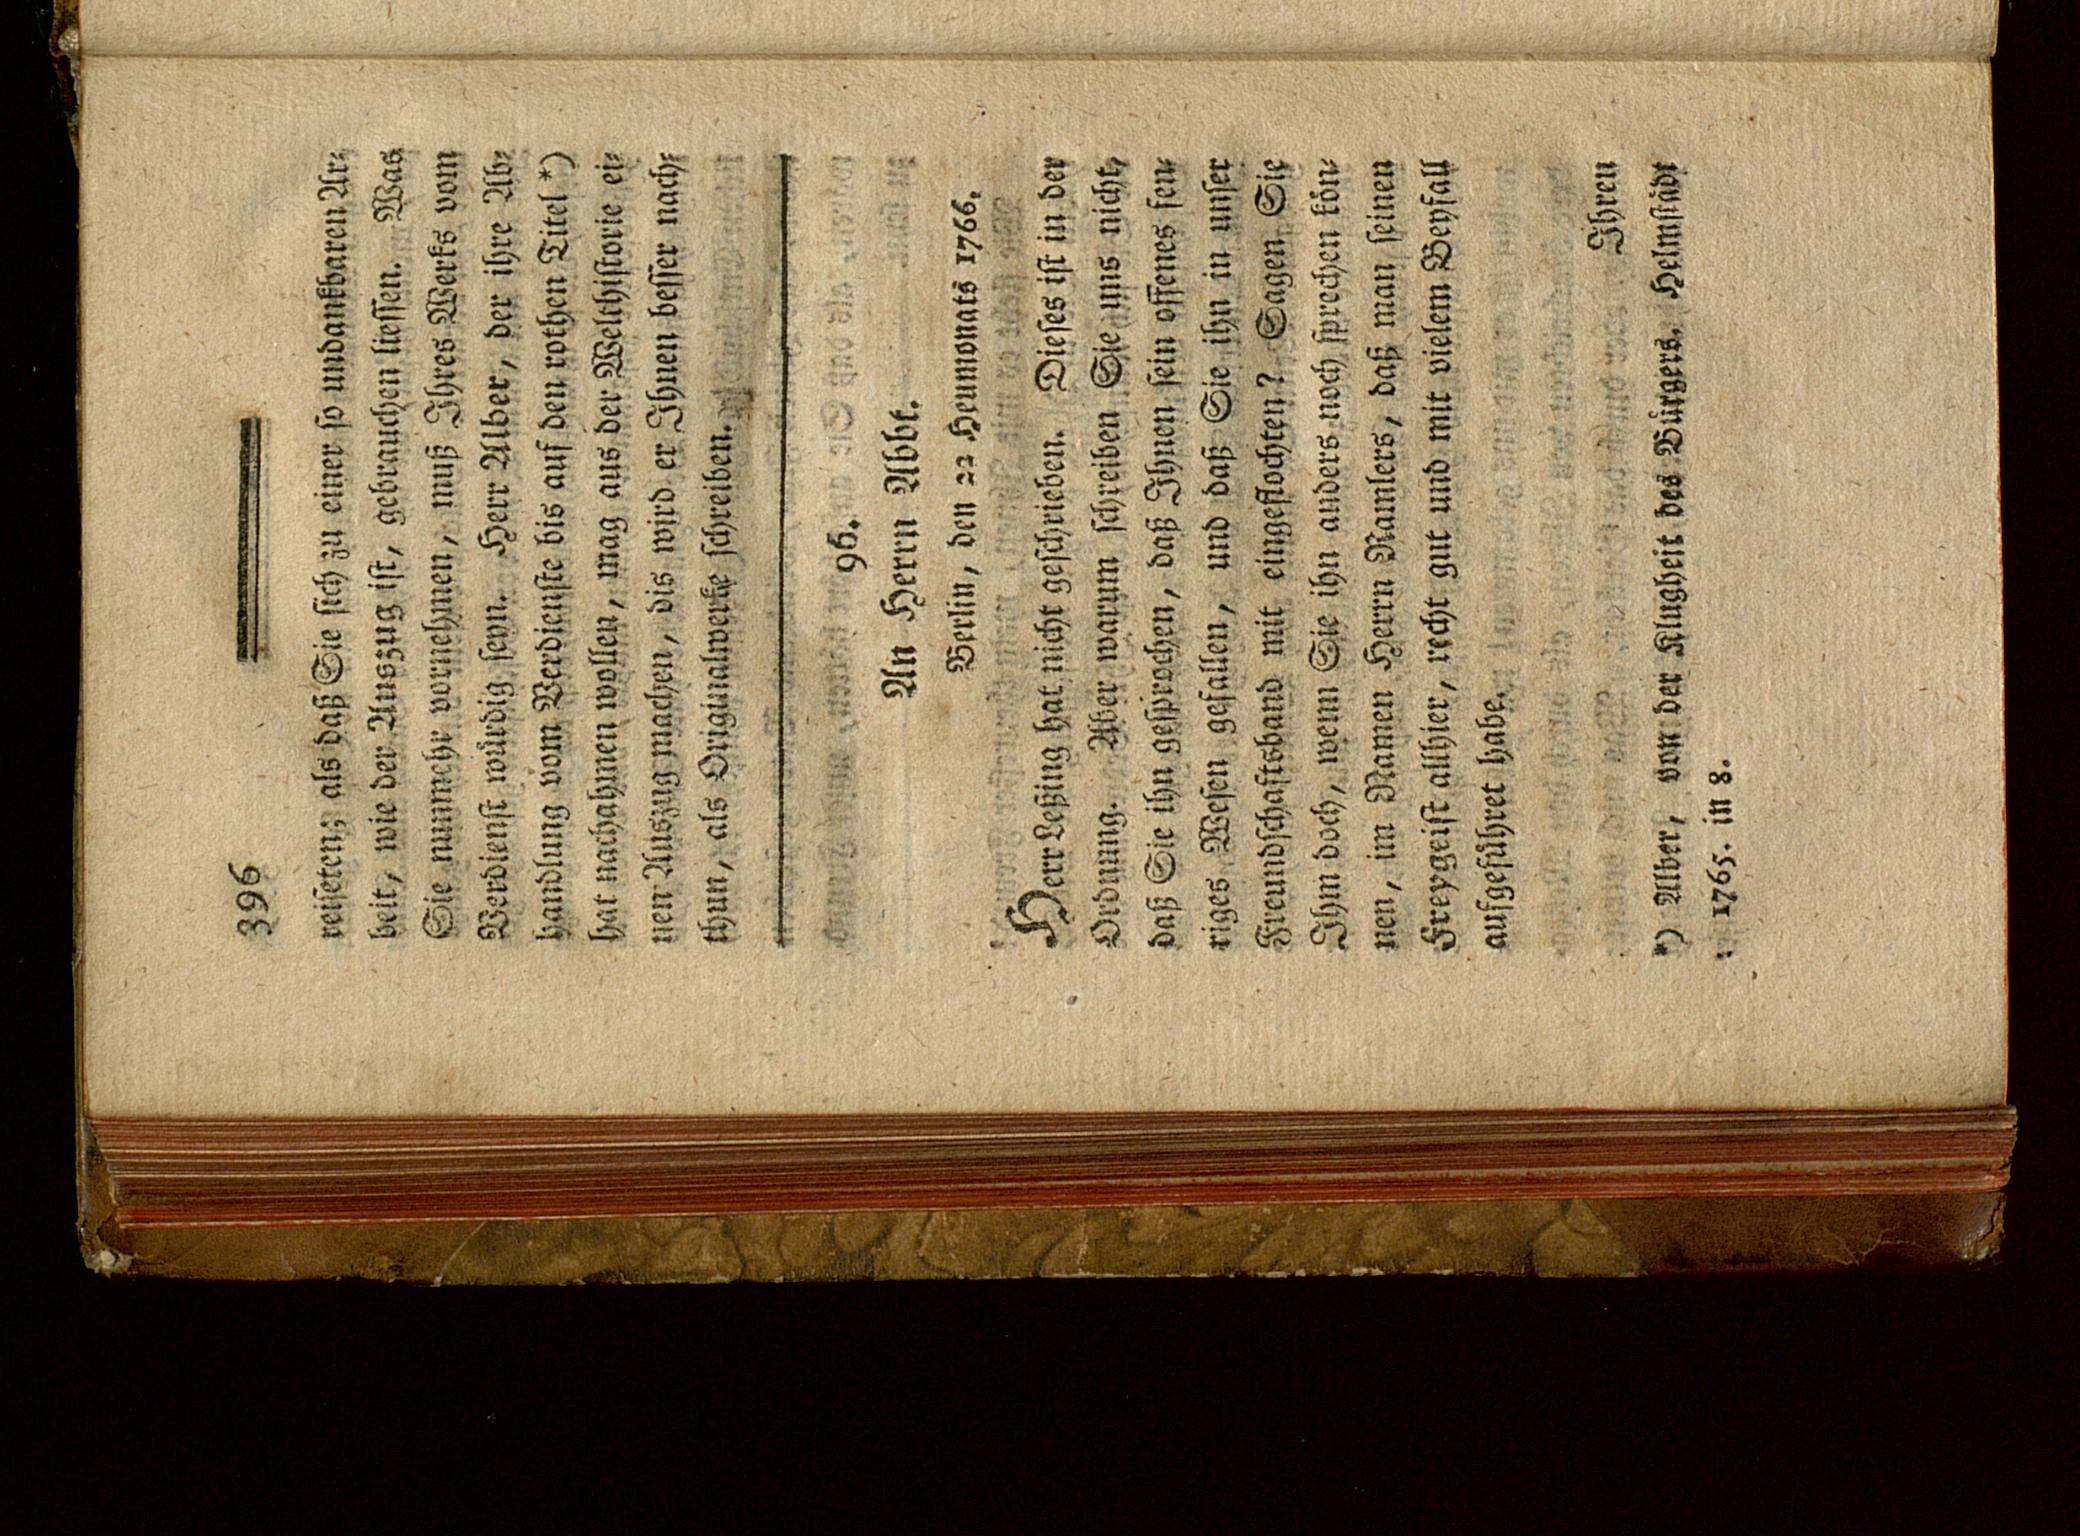 396
reiseten; als daß Sie sich zu einer so undankbaren Ar⸗
beit, wie der Auszug ist, gebrauchen liessen. Was
Sie nunmehr vornehmen, muß Ihres Werks vom
Verdienst würdig seyn. Herr Alber, der ihre Ab⸗
handlung vom Verdienste bis auf den rothen Titel *)
hat nachahmen wollen, mag aus der Welthistorie ei⸗
nen Auszug machen, dis wird er Ihnen besser nach⸗
thun, als Originalwerke schreiben.
96.
An Herrn Abbt.
Berlin, den 22 Heumonats 1766.
Herr Leßing hat nicht geschrieben. Dieses ist in der
Ordnung. Aber warum schreiben Sie uns nicht,
daß Sie ihn gesprochen, daß Ihnen sein offenes feu⸗
riges Wesen gefallen, und daß Sie ihn in unser
Freundschaftsband mit eingeflochten? Sagen Sie
Ihm doch, wenn Sie ihn anders noch sprechen kön⸗
nen, im Namen Herrn Ramlers, daß man seinen
Freygeist allhier, recht gut und mit vielem Beyfall
aufgeführet habe.
Ihren
*) Alber, von der Klugheit des Bürgers. Helmstädt
1765. in 8.